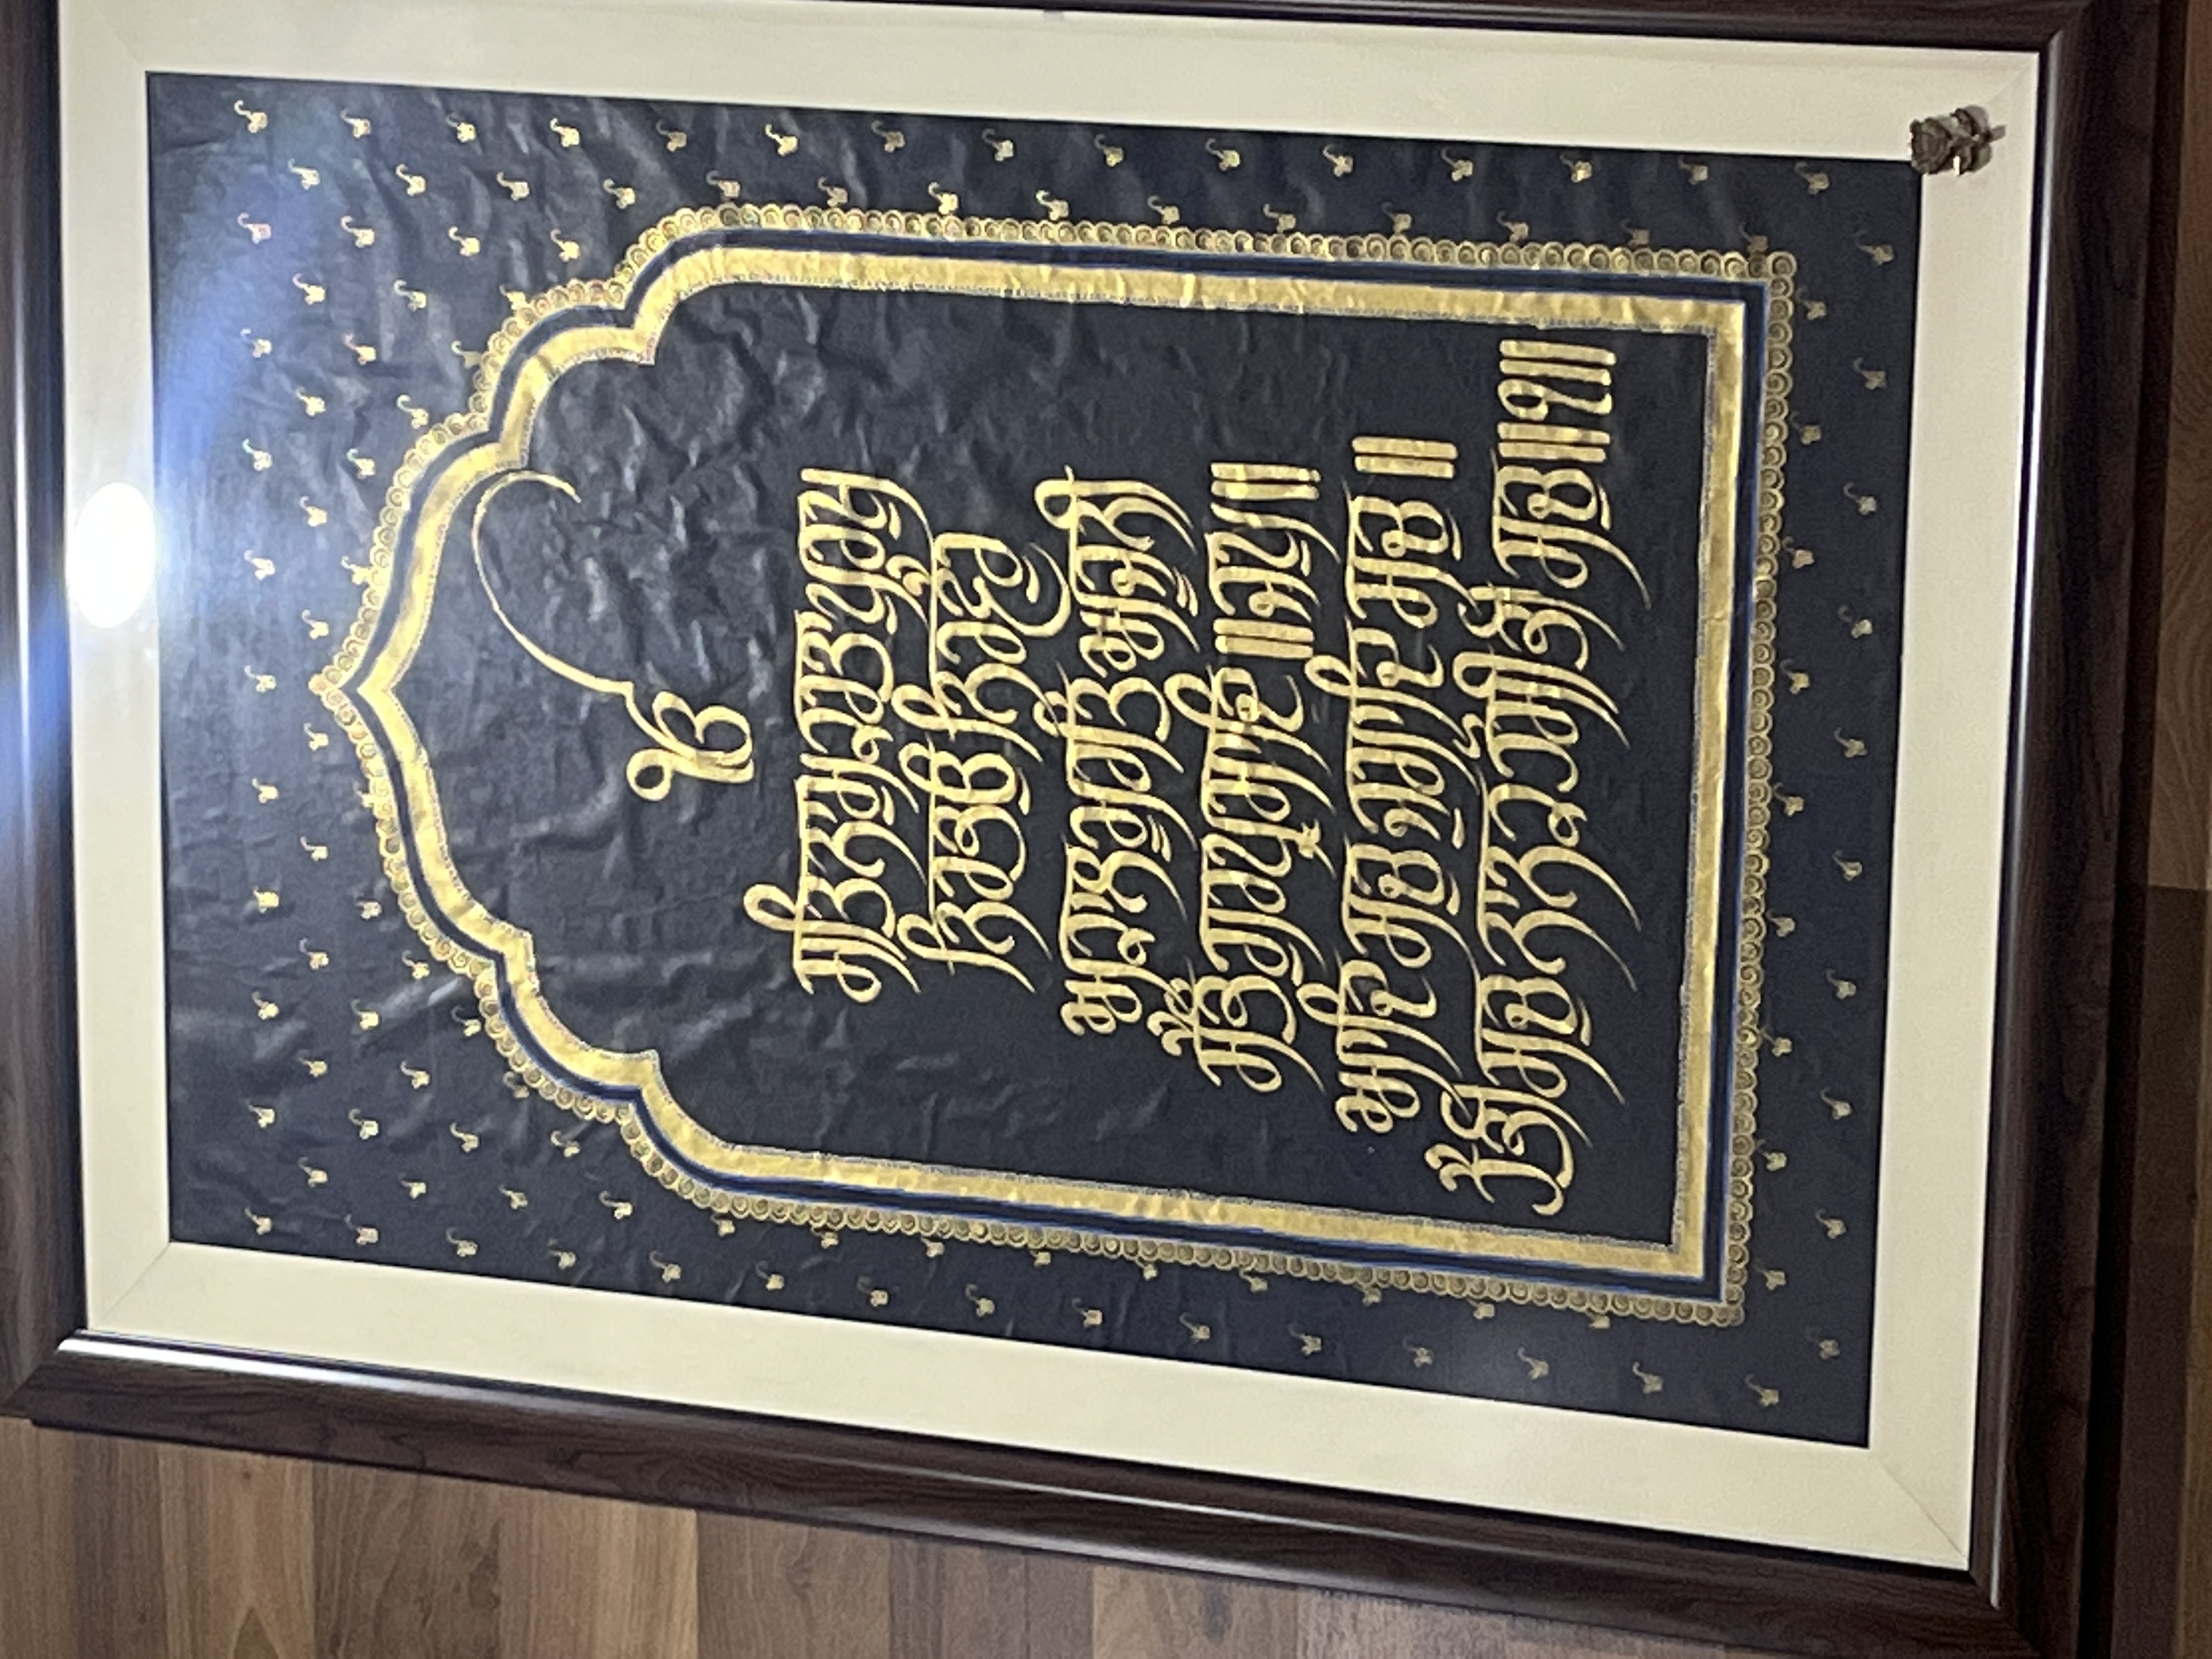 ੴ
ਸਤਿਨਾਮੁਕਰਤਾਪੁਰਖੁ
ਨਿਰਭਉਨਿਰਵੈਰੁ
ਅਕਾਲਮੂਰਤਿਅਜੂਨੀ
ਸੈਭੰਗੁਰਪ੍ਰਸਾਦਿ॥ਜਪੁ॥
ਆਦਿਸਚੁਜੁਗਾਦਿਸਚੁ॥
ਹੈਭੀਸਚੁਨਾਨਕਹੋਸੀਭੀਸਚੁ॥੧॥